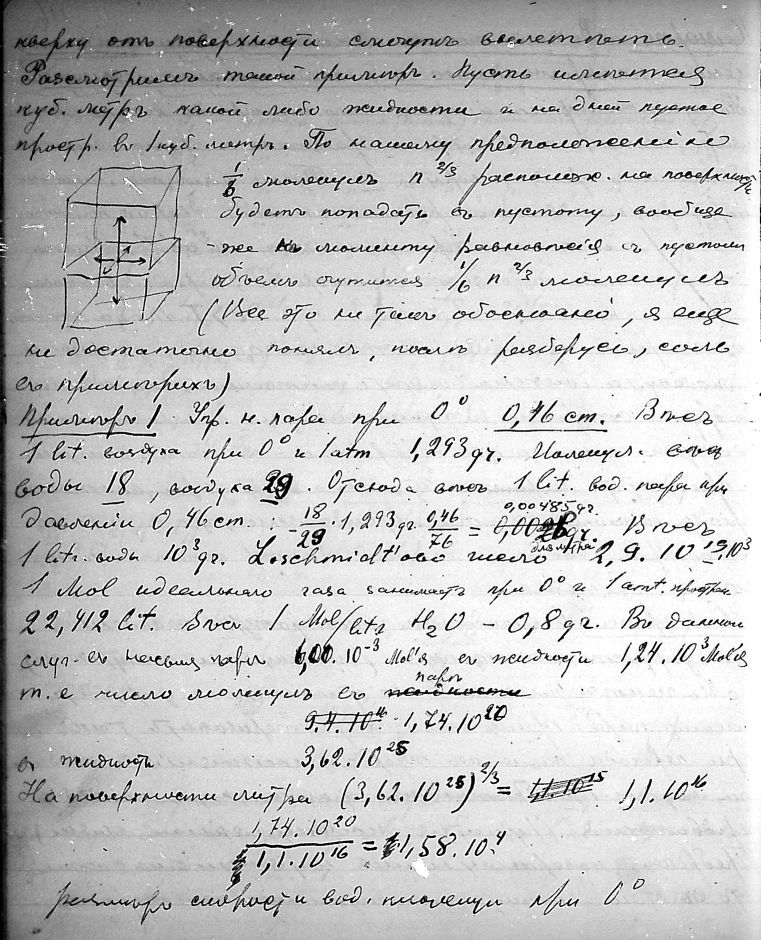 кверху отъ поверхности смогутъ взлетѣть.
Разсмотримъ такой примѣръ. Пусть имѣется
куб. метръ какой либо жидкости и на дней пустое
простр. въ 1 куб. метръ. По нашему предположенію
1/6 молекулъ n 2/3 располож. на поверхности
будетъ попадать въ пустоту, вообще
же къ моменту равновѣсія въ пустомъ
объемѣ очутится 1/6 n 2/3 молекулъ
(Все это не такъ обосновано, я еще
не достаточно понялъ, послѣ разберусь, соль
въ примѣрихъ)
Примѣръ 1 Упр. н. пара при 0° 0,46 cm. Вѣсъ
1 lit. воздуха при 0° и 1 atm 1,293 gr. Молекул. вѣсъ
воды 18, воздуха 29. Отсюда вѣсъ 1 lit. вод. пара при
0,00485 gr.
давленіи 0,46 cm. : 18/29 · 1,293 gr. 0,46/76 = 0,00 gr. Вѣсъ
1 litr. воды 10³ gr. Loschmidt'ово число 2,9. 10¹⁹.10³
1 Mol идеальнаго газа занимаетъ при 0° и 1 atm. простр.
22,412 lit. Вѣсъ 1 Mol/litr H₂O – 0,8 gr. Въ данном
случ. въ насыщ. парѣ 6,00. 10⁻³ Mol'я въ жидкости 1,24. 10³ Mol'я
паръ
т. е число молекулъ въ жидкости
9.4.10¹⁶ 1,74.10²⁰
въ жидкости 3,62.10²⁵
На поверхности литра (3,62.10²⁵)2/3 = 1,1.10¹⁵ 1,1.10¹⁶
1,74.10²⁰
1,1.10¹⁶ = 1,58.10⁴
размѣръ скорости вод. молекул при 0°